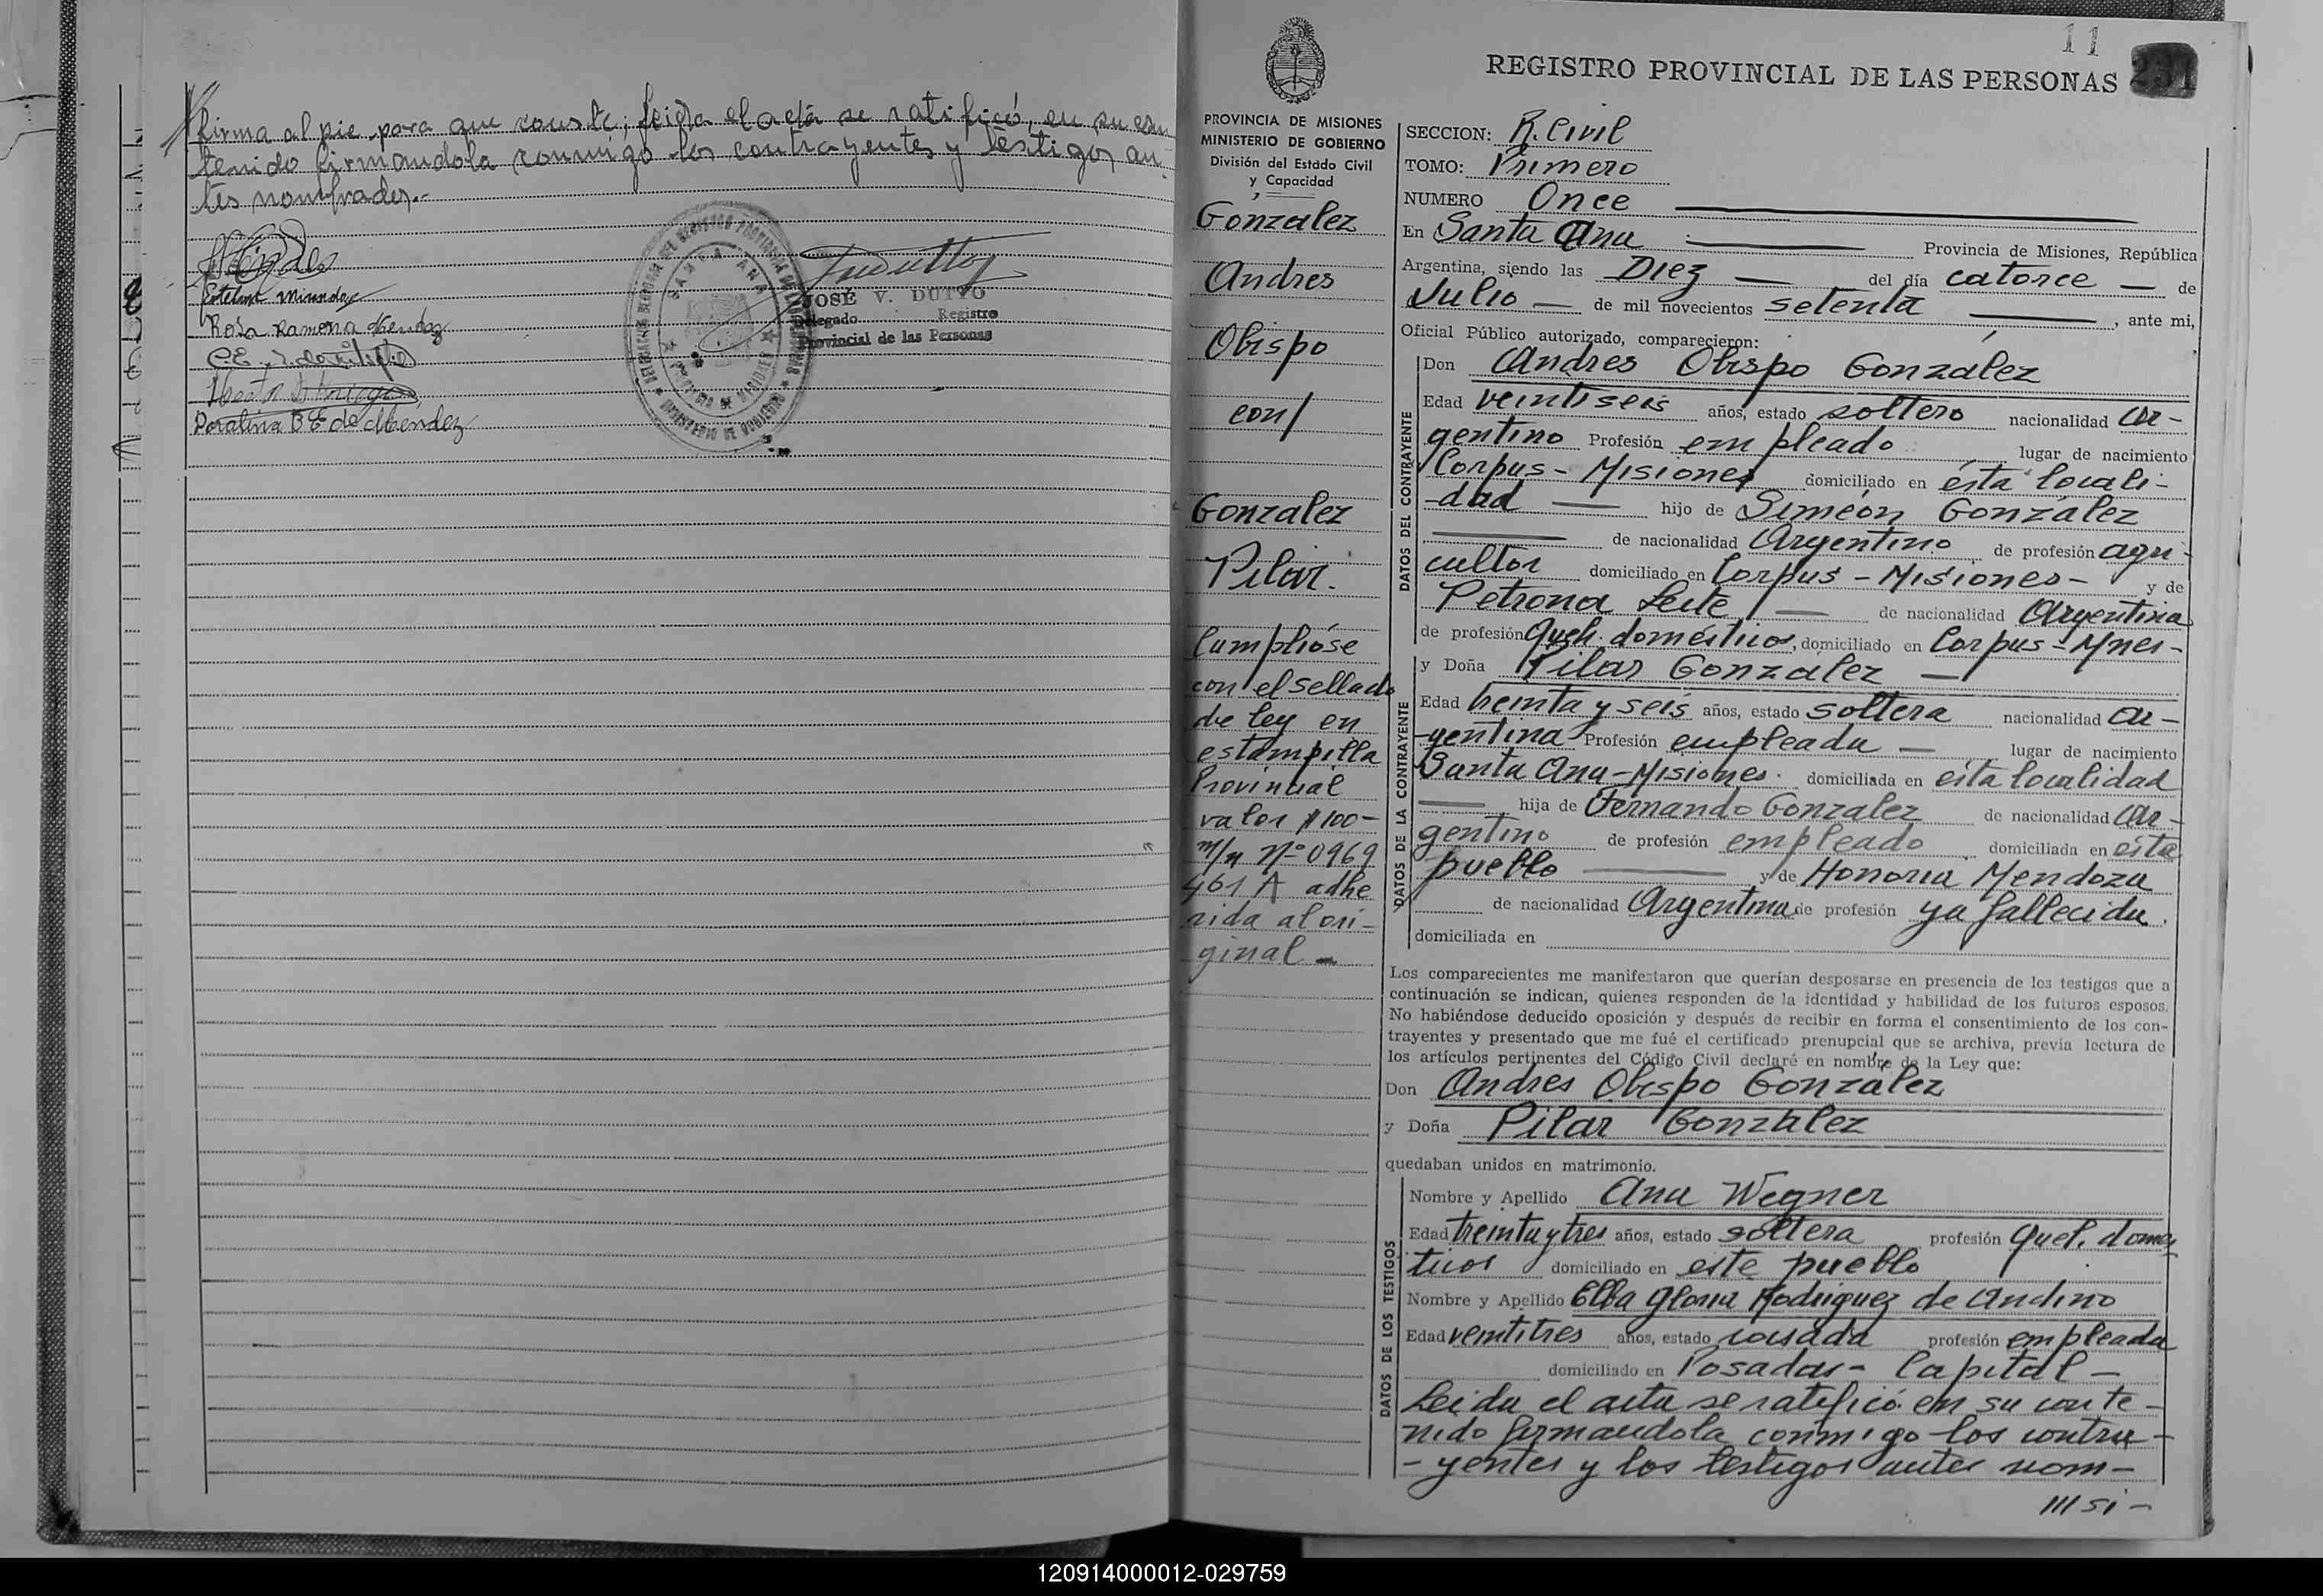 firma al pie para que conste; leida el acta se ratificó, en su con
tenido firmandola conmigo los contrayentes y testigos an
tes nombrados.-
Esteban Miranda
Rosa Ramona Mendez
Doralina B E de Mendez
JOSÉ V. DUTTO
Delegado Registro
Provincial de las Personas
SANTA ANA
11
REGISTRO PROVINCIAL DE LAS PERSONAS
PROVINCIA DE MISIONES
MINISTERIO DE GOBIERNO
División del Estado Civil
y Capacidad
Gonzalez
Andres
Obispo
con/
Gonzalez
Pilar.
Cumplióse
con el sellado
de ley en
estampilla
Provincial
valor $ 100-
m/n Nº 0969
461 A adhe
rida al ori-
ginal -
SECCION: R. Civil
TOMO: Primero
NUMERO Once
En Santa Ana Provincia de Misiones, República
Argentina, siendo las Diez del día catorce de
Julio de mil novecientos setenta, ante mi,
Oficial Público autorizado, comparecieron:
DATOS DEL CONTRAYENTE
Don Andres Obispo Gonzalez
Edad veintiseis años, estado soltero nacionalidad ar-
gentino Profesión empleado lugar de nacimiento
Corpus - Misiones domiciliado en ésta locali-
-dad hijo de Simeón González
de nacionalidad Argentino de profesión agri-
cultor domiciliado en Corpus - Misiones - y de
Petrona Leite de nacionalidad Argentina
de profesión Queh. domésticos, domiciliado en Corpus - Mnes-
DATOS DE LA CONTRAYENTE
y Doña Pilar Gonzalez
Edad treinta y seis años, estado soltera nacionalidad ar-
-gentina Profesión empleada lugar de nacimiento
Santa Ana - Misiones. domiciliada en ésta localidad
hija de Fernando Gonzalez de nacionalidad ar-
gentino de profesión empleado domiciliada en este
pueblo y de Honoria Mendoza
de nacionalidad Argentina de profesión ya fallecida.
domiciliada en
Los comparecientes me manifestaron que querían desposarse en presencia de los testigos que a
continuación se indican, quienes responden de la identidad y habilidad de los futuros esposos.
No habiéndose deducido oposición y después de recibir en forma el consentimiento de los con-
trayentes y presentado que me fué el certificado prenupcial que se archiva, previa lectura de
los artículos pertinentes del Código Civil declaré en nombre de la Ley que:
Don Andres Obispo Gonzalez
y Doña Pilar Gonzalez
quedaban unidos en matrimonio.
DATOS DE LOS TESTIGOS
Nombre y Apellido Ana Wegner
Edad treinta y tres años, estado soltera profesión Queh. domés
ticos domiciliado en este pueblo
Nombre y Apellido Elba Gloria Rodriguez de Andino
Edad veintitres años, estado casada profesión empleada
domiciliado en Posadas - Capital -
Leida el acta se ratificó en su conte-
nido firmandola conmigo los contra-
-yentes y los testigos antes nom-
///si-
120914000012-029759